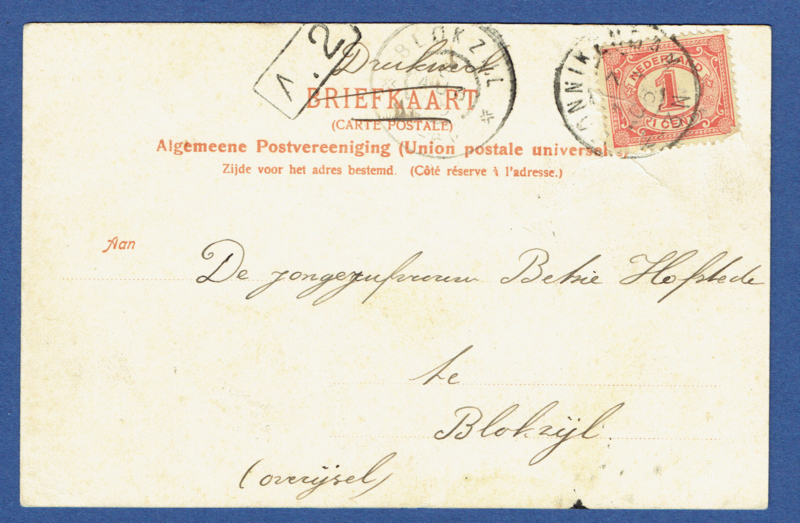 Λ.2
Drukwerk
BLOKZIJL
BRIEFKAART
(CARTE POSTALE)
Algemeene Postvereeniging (Union postale universelle)
Zijde voor het adres bestemd. (Côté réserve à l'adresse.)
NEDERL
1
CENT
Aan
De jongejufvrouw Betsie Hofstede
te
Blokzijl.
(overijsel)